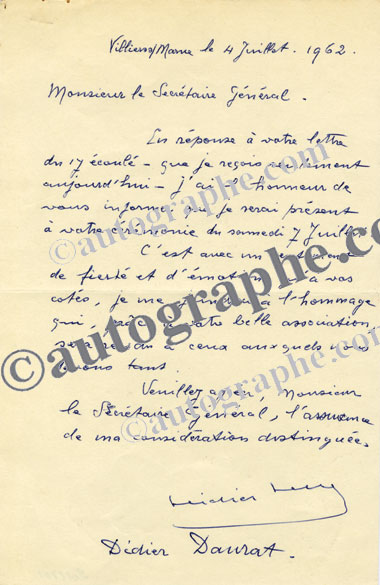 Villiers/Marne le 4 Juillet. 1962
Monsieur le Secrétaire Général.
En réponse à votre lettre
du 17 écoulé – que je reçois seulement
aujourd'hui – j'ai l'honneur de
vous informer que je serai présent
à votre cérémonie du samedi 7 Juillet
C'est avec un sentiment
de fierté et d'émotion à vos
cotés, je me à l'hommage
qui votre belle association,
à ceux auxquels nous
tant.
Veuillez agréer, Monsieur
le Secrétaire Général, l'assurance
de ma considération distinguée.
Didier Daurat.
©autographe.com
©autographe.com
©autographe.com